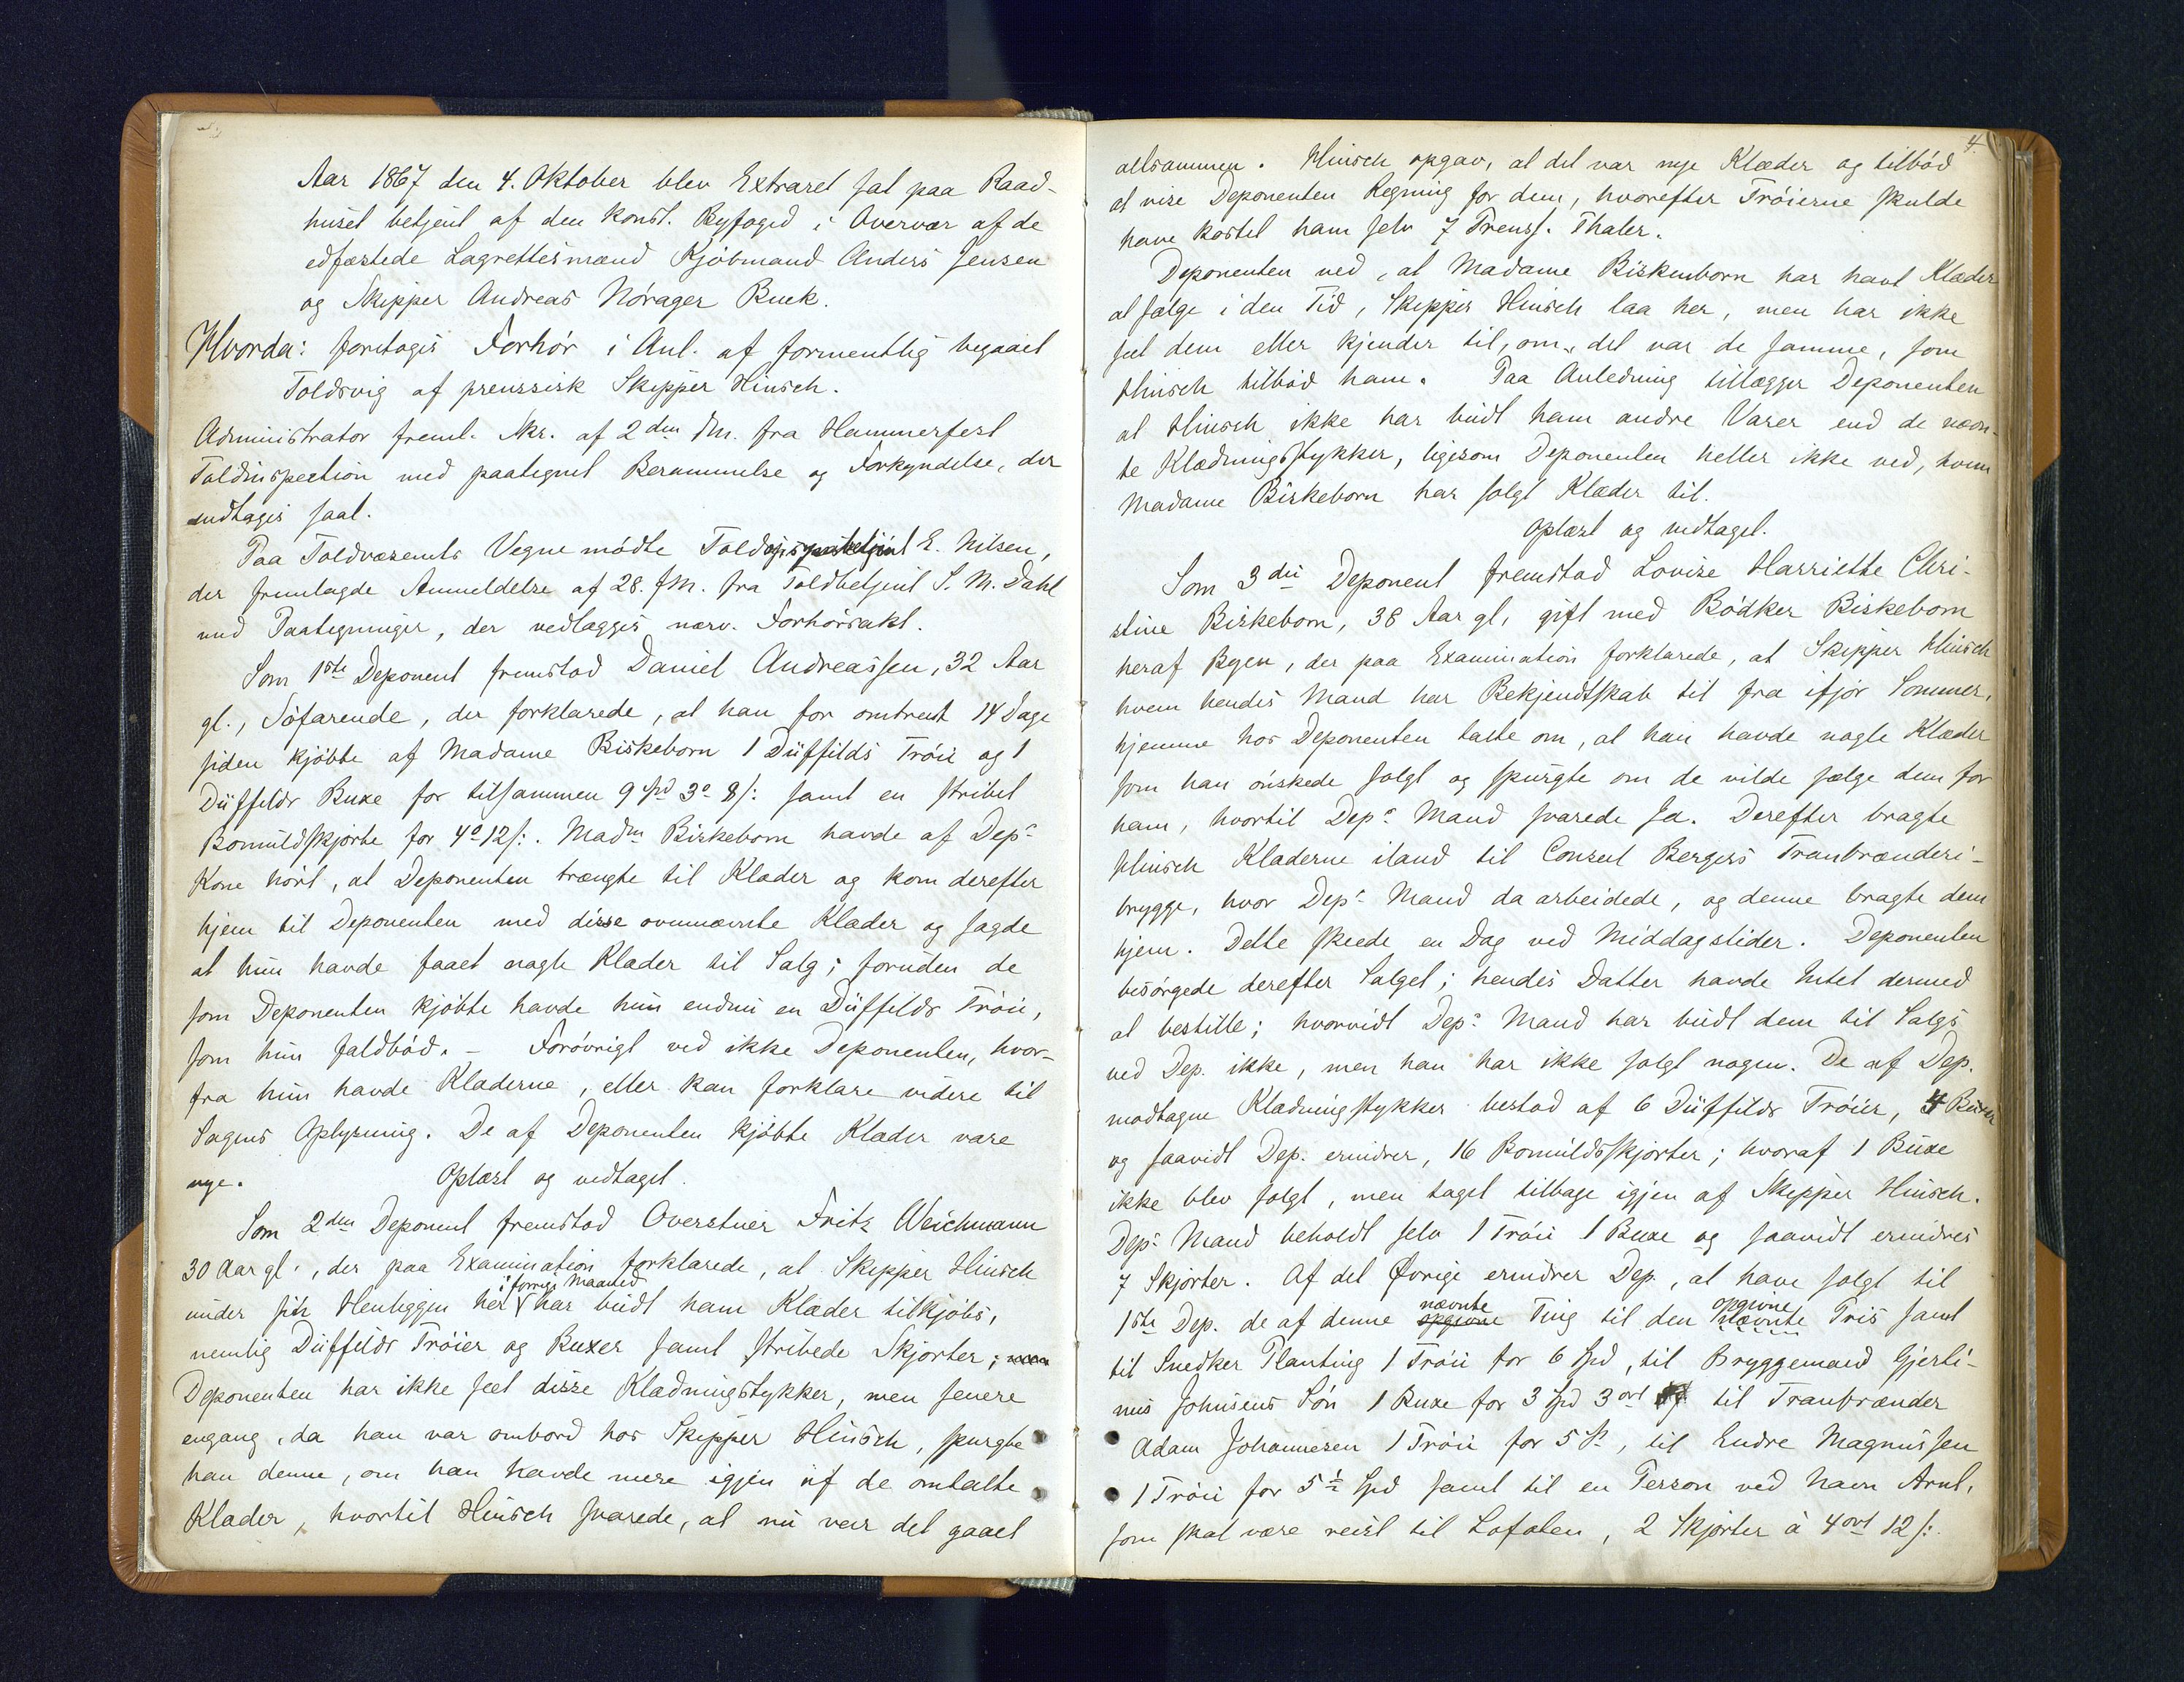 Aar 1867 den 4. Oktober blev Extraret sat paa Raad-
huset betjent af den konst. Byfoged i Overvær af de
edfæstede Lagrettesmænd Kjöbmand Anders Jensen
og Skipper Andreas Nörager Buck.
Hvorda: foretoges Forhör i Anl. af formentlig begaaet
Toldsvig af preussisk Skipper Hinsch.
Administrator freml. Skr. af 2den dM. fra Hammerfest
Toldinspection med paategnet Berammelse og Forkyndelse, der
indtages saal.
Paa Toldvæsenets Vegne mödte E. Nilsen,
der fremlagde Anmeldelse af 28. f.M. fra Toldbetjent S. M. Dahl
med Paategninger, der vedlægges nærv. Forhörsakt.
Som 1ste Deponent fremstod Daniel Andreassen, 32 Aar
gl., Söfarende, der forklarede, at han for omtrent 14 Dage
siden kjöbte af Madame Birkeborn 1 Düffelds Tröie og 1
Düffelds Buxe for tilsammen 9 Spd 3o 8 s: samt en stribet
Bomuldsskjorte for 4o 12 s:. Madm Birkeborn havde af Deps
Kone hört, at Deponenten trængte til Klæder og kom derefter
hjem til Deponenten med disse ovennævnte Klæder og sagde
at hun havde faaet nogle Klæder til Salg; foruden de
som Deponenten kjöbte havde hun endnu en Düffelds Tröie,
som hun falböd. - Forövrigt ved ikke Deponenten, hvor-
fra hun havde Klæderne, eller kan forklare videre til
Sagens Oplysning. De af Deponenten kjöbte Klæder vare
nye. Oplæst og vedtaget.
Som 2den Deponent fremstod Overstuer Fritz Weichmann
30 Aar gl., der paa Examination forklarede, at Skipper Hinsch
i forrige Maaned
under sin Henliggen her har budt ham Klæder tilkjöbs,
nemlig Düffelds Tröier og Buxer samt stribede Skjorter; men
Deponenten har ikke seet disse Klædningstykker, men senere
engang, da han var ombord hos Skipper Hinsch, spurgte
han denne, om han havde mere igjen af de omtalte
Klæder, hvortil Hinsch svarede, at nu var det gaaet
4.
allsammen. Hinsch opgav, at det var nye Klæder og tilböd
at vise Deponenten Regning for dem, hvorefter Tröierne skulde
have kostet ham selv 7 Preuss. Thaler.
Deponenten ved, at Madame Birkenborn har havt Klæder
at sælge i den Tid, Skipper Hinsch laa her, men har ikke
seet dem eller kjender til, om det var de samme, som
Hinsch tilböd ham. Paa Anledning tillægger Deponenten
at Hinsch ikke har budt ham andre Varer end de nævn-
te Klædningsstykker, ligesom Deponenten heller ikke ved, hvem
Madame Birkeborn har solgt Klæder til.
Oplæst og vedtaget.
Som 3die Deponent fremstod Lovise Harriette Chri-
stine Birkeborn, 38 Aar gl, gift med Bödker Birkeborn
heraf Byen, der paa Examination forklarede, at Skipper Hinsch
hvem hendes Mand har Bekjendtskab til fra ifjor Sommer,
hjemme hos Deponenten talte om, at han havde nogle Klæder
som han önskede solgt og spurgte om de vilde sælge dem for
ham, hvortil Deps Mand svarede Ja. Derefter bragte
Hinsch Klæderne iland til Consul Bergers Tranbrænderi-
brygge, hvor Deps Mand da arbeidede, og denne bragte dem
hjem. Dette skeede en Dag ved Middagstider. Deponenten
besörgede derefter Salget; hendes Datter havde Intet dermed
at bestille; hvorvidt Deps Mand har budt dem til Salgs
ved Dep. ikke, men han har ikke solgt nogen. De af Dep.
modtagne Klædningsstykker bestod af 6 Düffelds Tröier, 4 Buxer
og saavidt Dep. erindrer, 16 Bomuldsskjorter; hvoraf 1 Buxe
ikke blev solgt, men taget tilbage igjen af Skipper Hinsch.
Deps Mand beholdt selv 1 Tröie 1 Buxe og saavidt erindres
7 Skjorter. Af det Øvrige erindrer Dep., at have solgt til
nævnte opgivne
1ste Dep. de af denne opgivne Ting til den nævnte Pris samt
til Snedker Planting 1 Tröie for 6 Spd, til Bryggemand Gjerti-
nus Johnsens Sön 1 Buxe for 3 Spd 3 ort til Tranbrænder
Adam Johannesen 1 Tröie for 5 Sp, til Endre Magnussen
1 Tröie for 5½ Spd samt til en Person ved Navn Arnt,
som skal være reist til Lofoten, 2 Skjorter à 4 ort 12 s:.